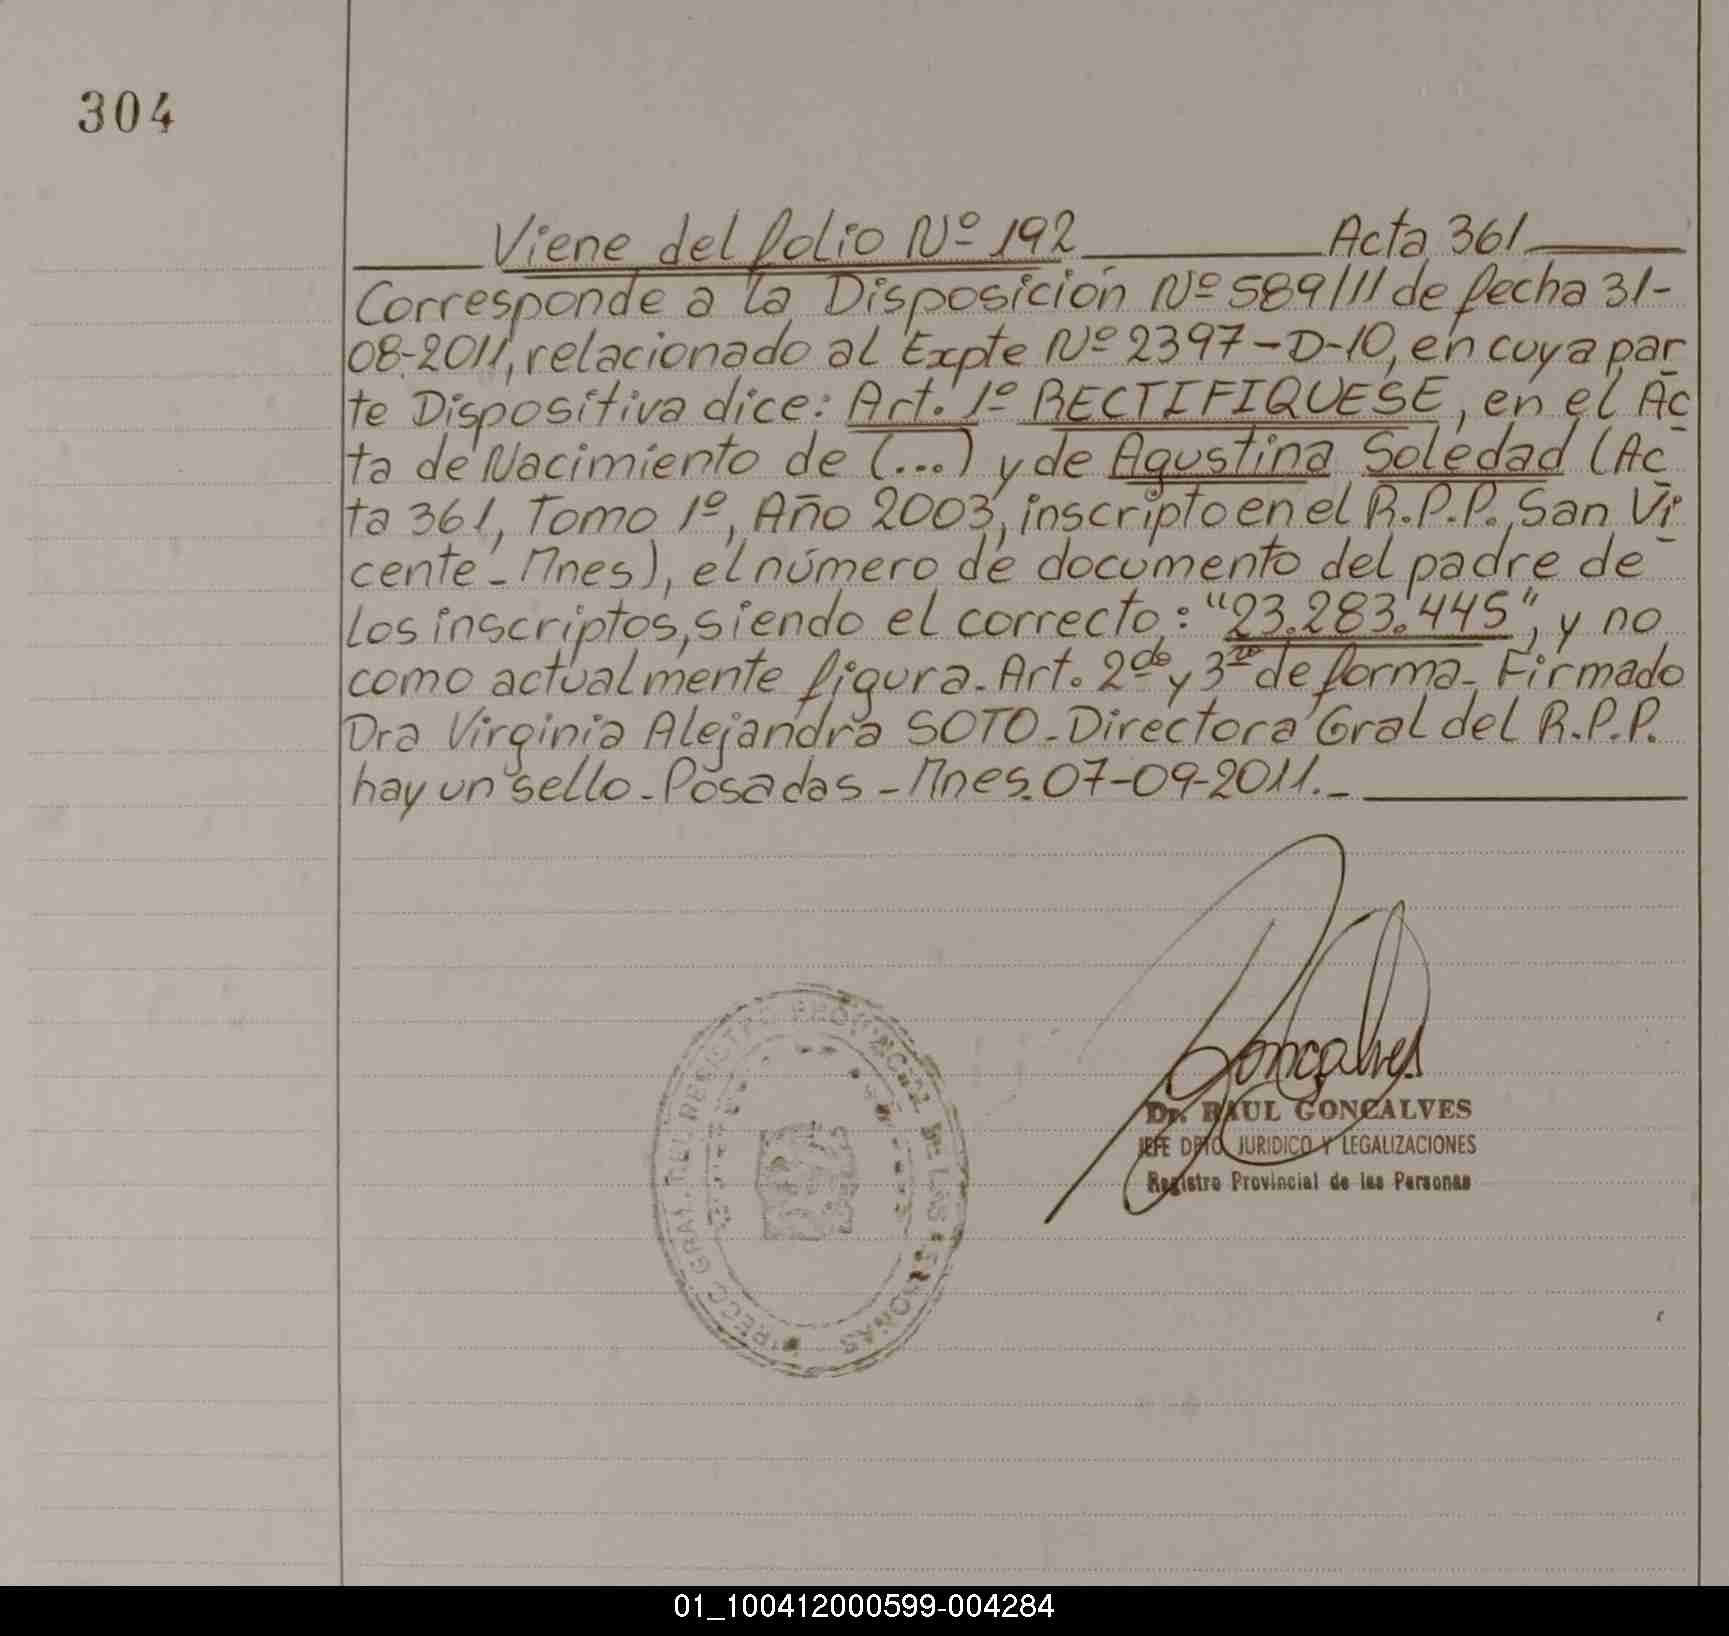 304
Viene del folio Nº 192 Acta 361
Corresponde a la Disposición Nº 589/11 de fecha 31-
08-2011, relacionado al Expte Nº 2397-D-10, en cuya par
te Dispositiva dice: Art. 1º RECTIFIQUESE, en el Ac
ta de Nacimiento de (...) y de Agustina Soledad (Ac
ta 361, Tomo 1º, Año 2003, inscripto en el R.P.P. San Vi
cente - Mnes), el número de documento del padre de
los inscriptos, siendo el correcto: "23.283.445", y no
como actualmente figura. Art. 2do y 3ro de forma. Firmado
Dra Virginia Alejandra SOTO - Directora Gral del R.P.P.
hay un sello - Posadas - Mnes. 07-09-2011.-
Goncalves
Dr. RAUL GONCALVES
JEFE DPTO JURIDICO Y LEGALIZACIONES
Registro Provincial de las Personas
GRAL. DEL REGISTRO PROVINCIAL DE LAS PERSONAS
01_100412000599-004284